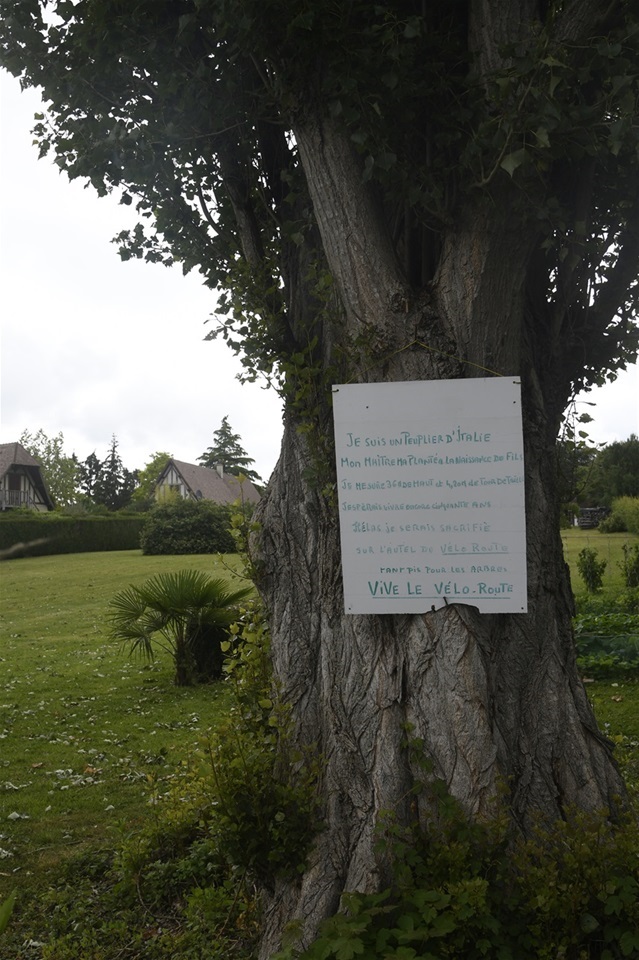 JE SUIS UN PEUPLIER D'ITALIE
MON MAÎTRE MA PLANTÉ A LA NAISSANCE DE
JE MESURE DE HAUT ET DE TOUR DE
J'ESPÉRAIS VIVRE ENCORE QUARANTE ANS
HÉLAS JE SERAIS SACRIFIÉ
SUR L'AUTEL DU VÉLO ROUTE
TANT PIS POUR LES ARBRES
VIVE LE VÉLO-ROUTE